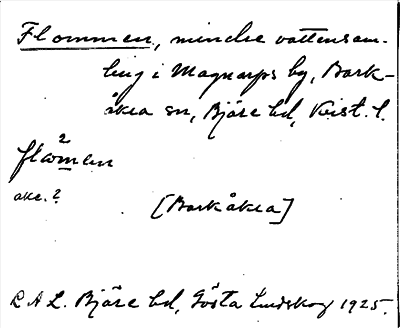 Flommen, mindre vattensam-
ling i Magnarps by, Bark-
åkra sn, Bjäre hd, Krist. l.
2
flωmen
akc. ?
[Barkåkra]
L A L. Bjäre hd, Gösta Lindskog 1925.